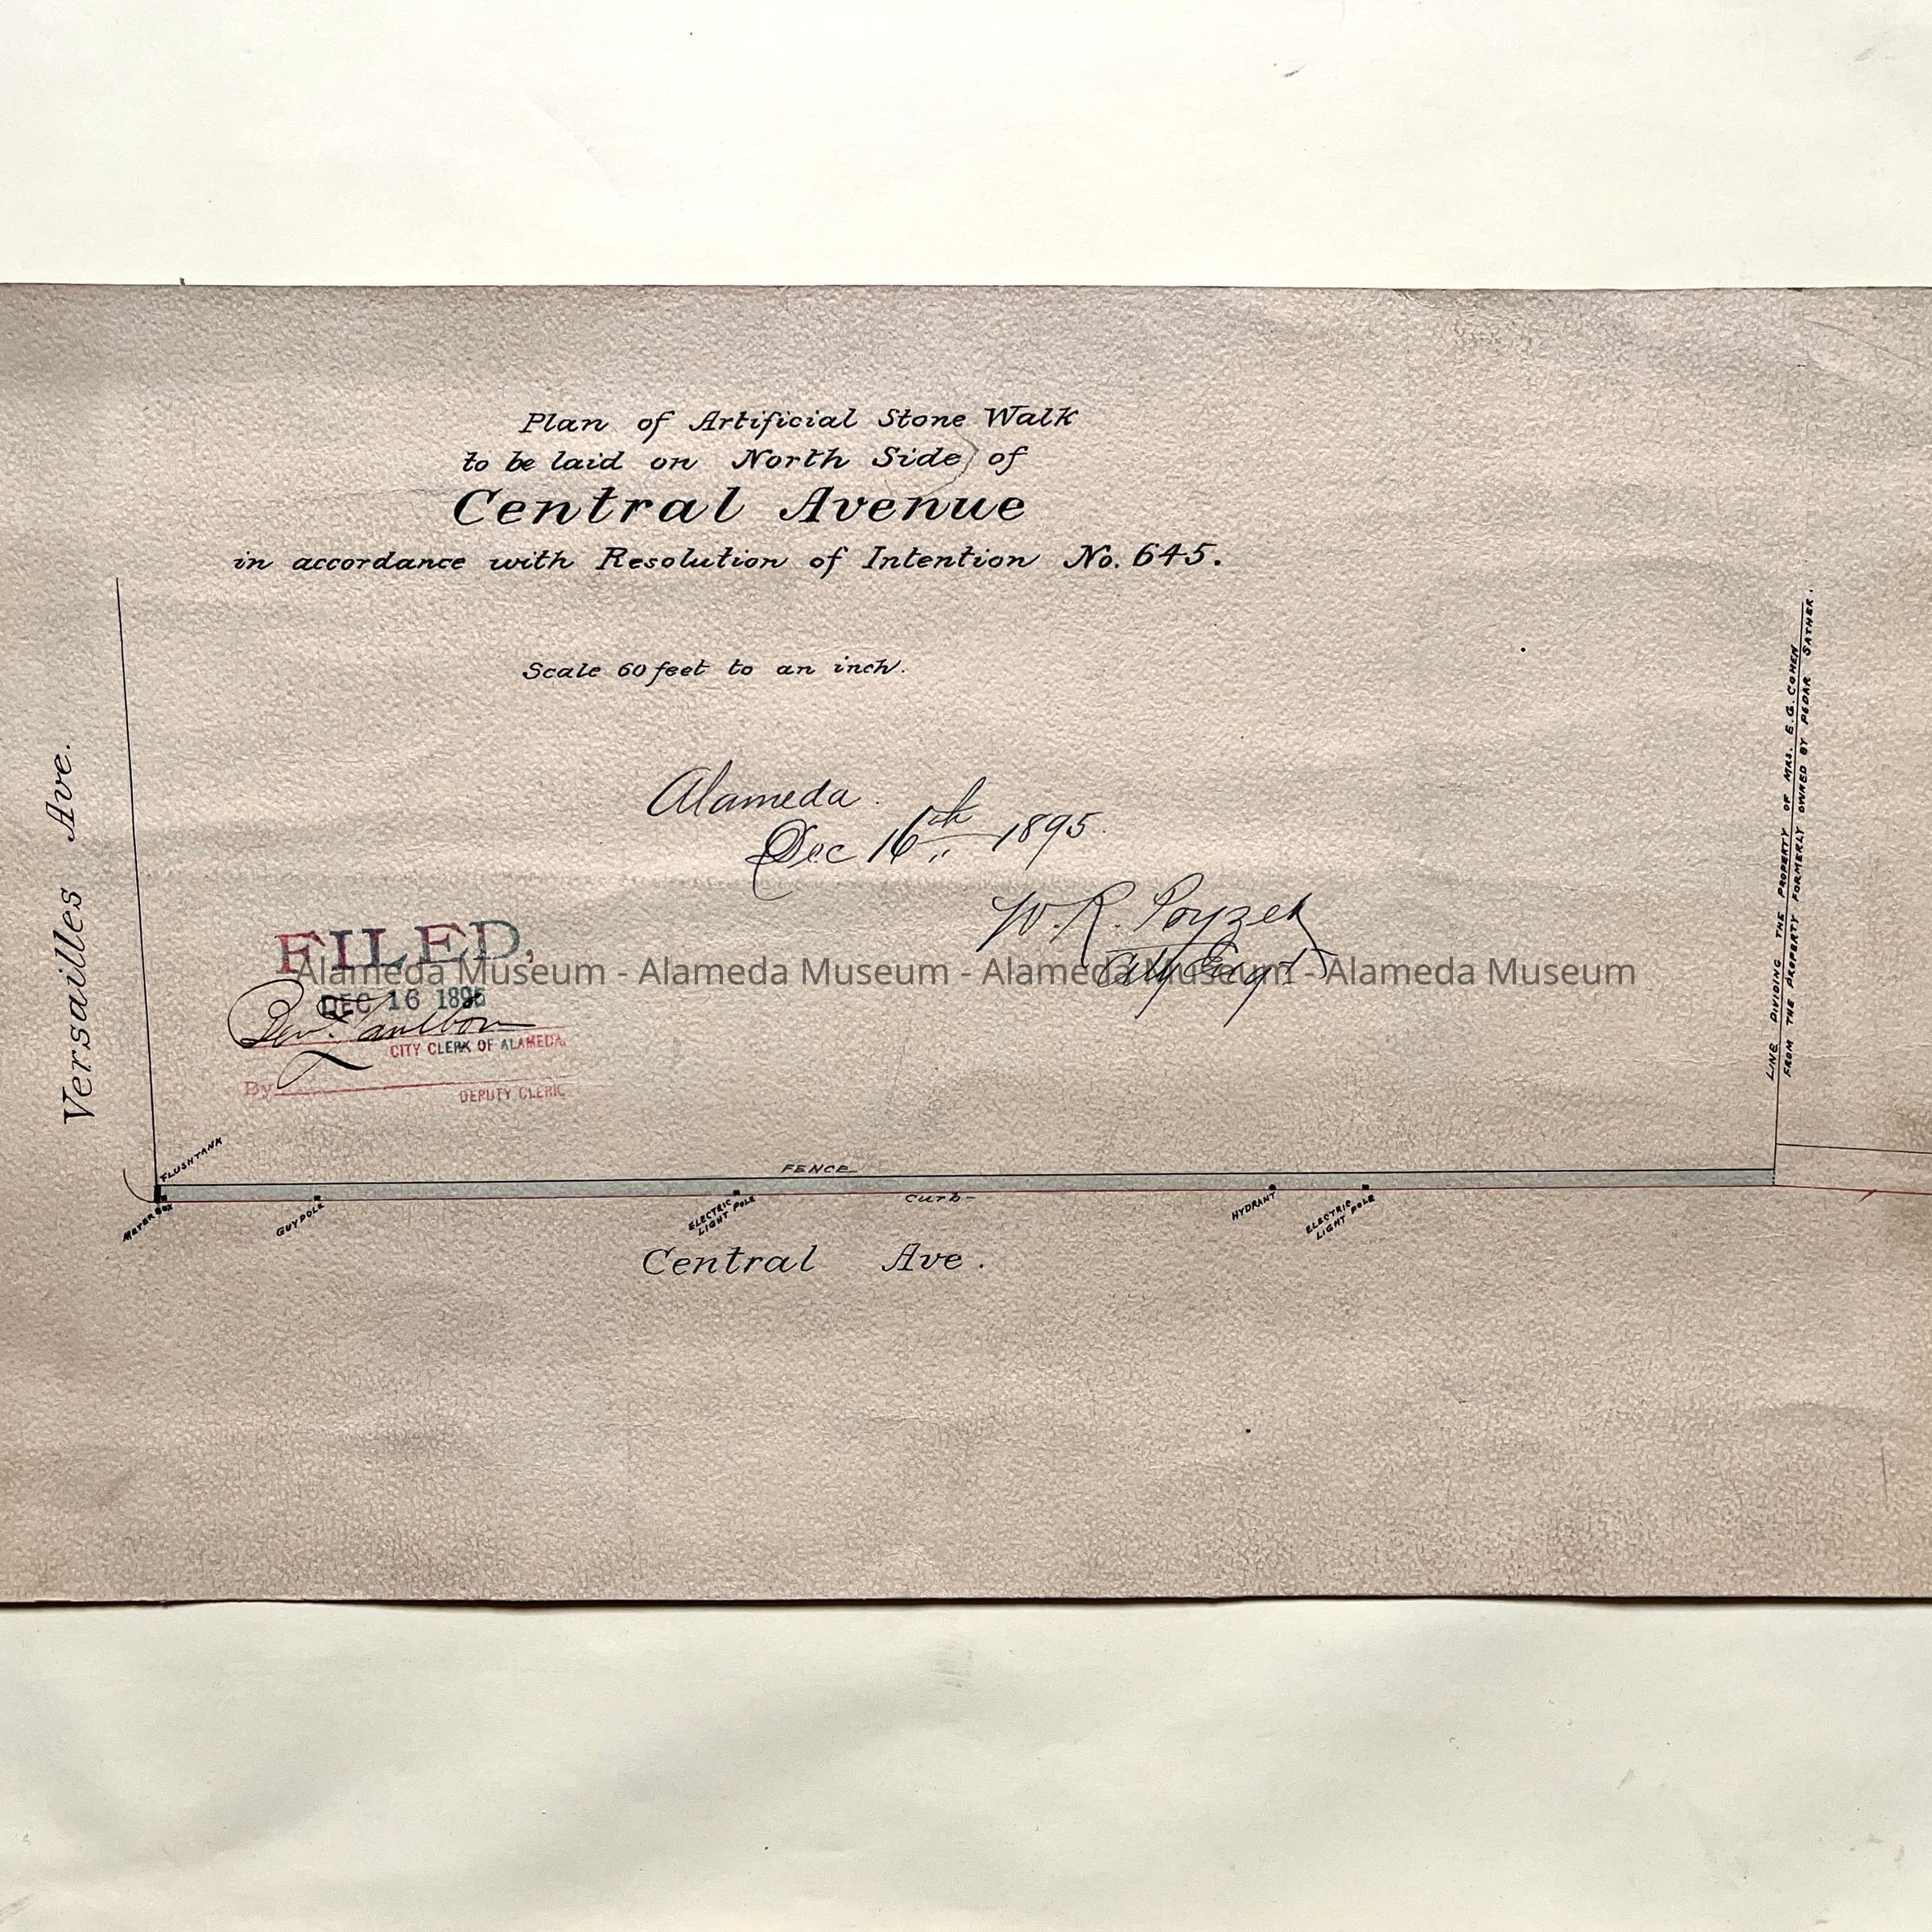 Plan of Artificial Stone Walk
to be laid on North Side of
Central Avenue
in accordance with Resolution of Intention No. 645.
Scale 60 feet to an inch.
Alameda.
Dec 16th 1895.
W. R. Poyzer
City Engr
FILED,
DEC 16 1895
CITY CLERK OF ALAMEDA.
By
DEPUTY CLERK
Alameda Museum - Alameda Museum - Alameda Museum - Alameda Museum
Versailles Ave.
LINE DIVIDING THE PROPERTY OF MRS. E. G. COHEN
FROM THE PROPERTY FORMERLY OWNED BY PEDAR SATHER.
FLUSHTANK
FENCE
METER BOX
GUY POLE
ELECTRIC
LIGHT POLE
Curb
HYDRANT
ELECTRIC
LIGHT POLE
Central Ave.